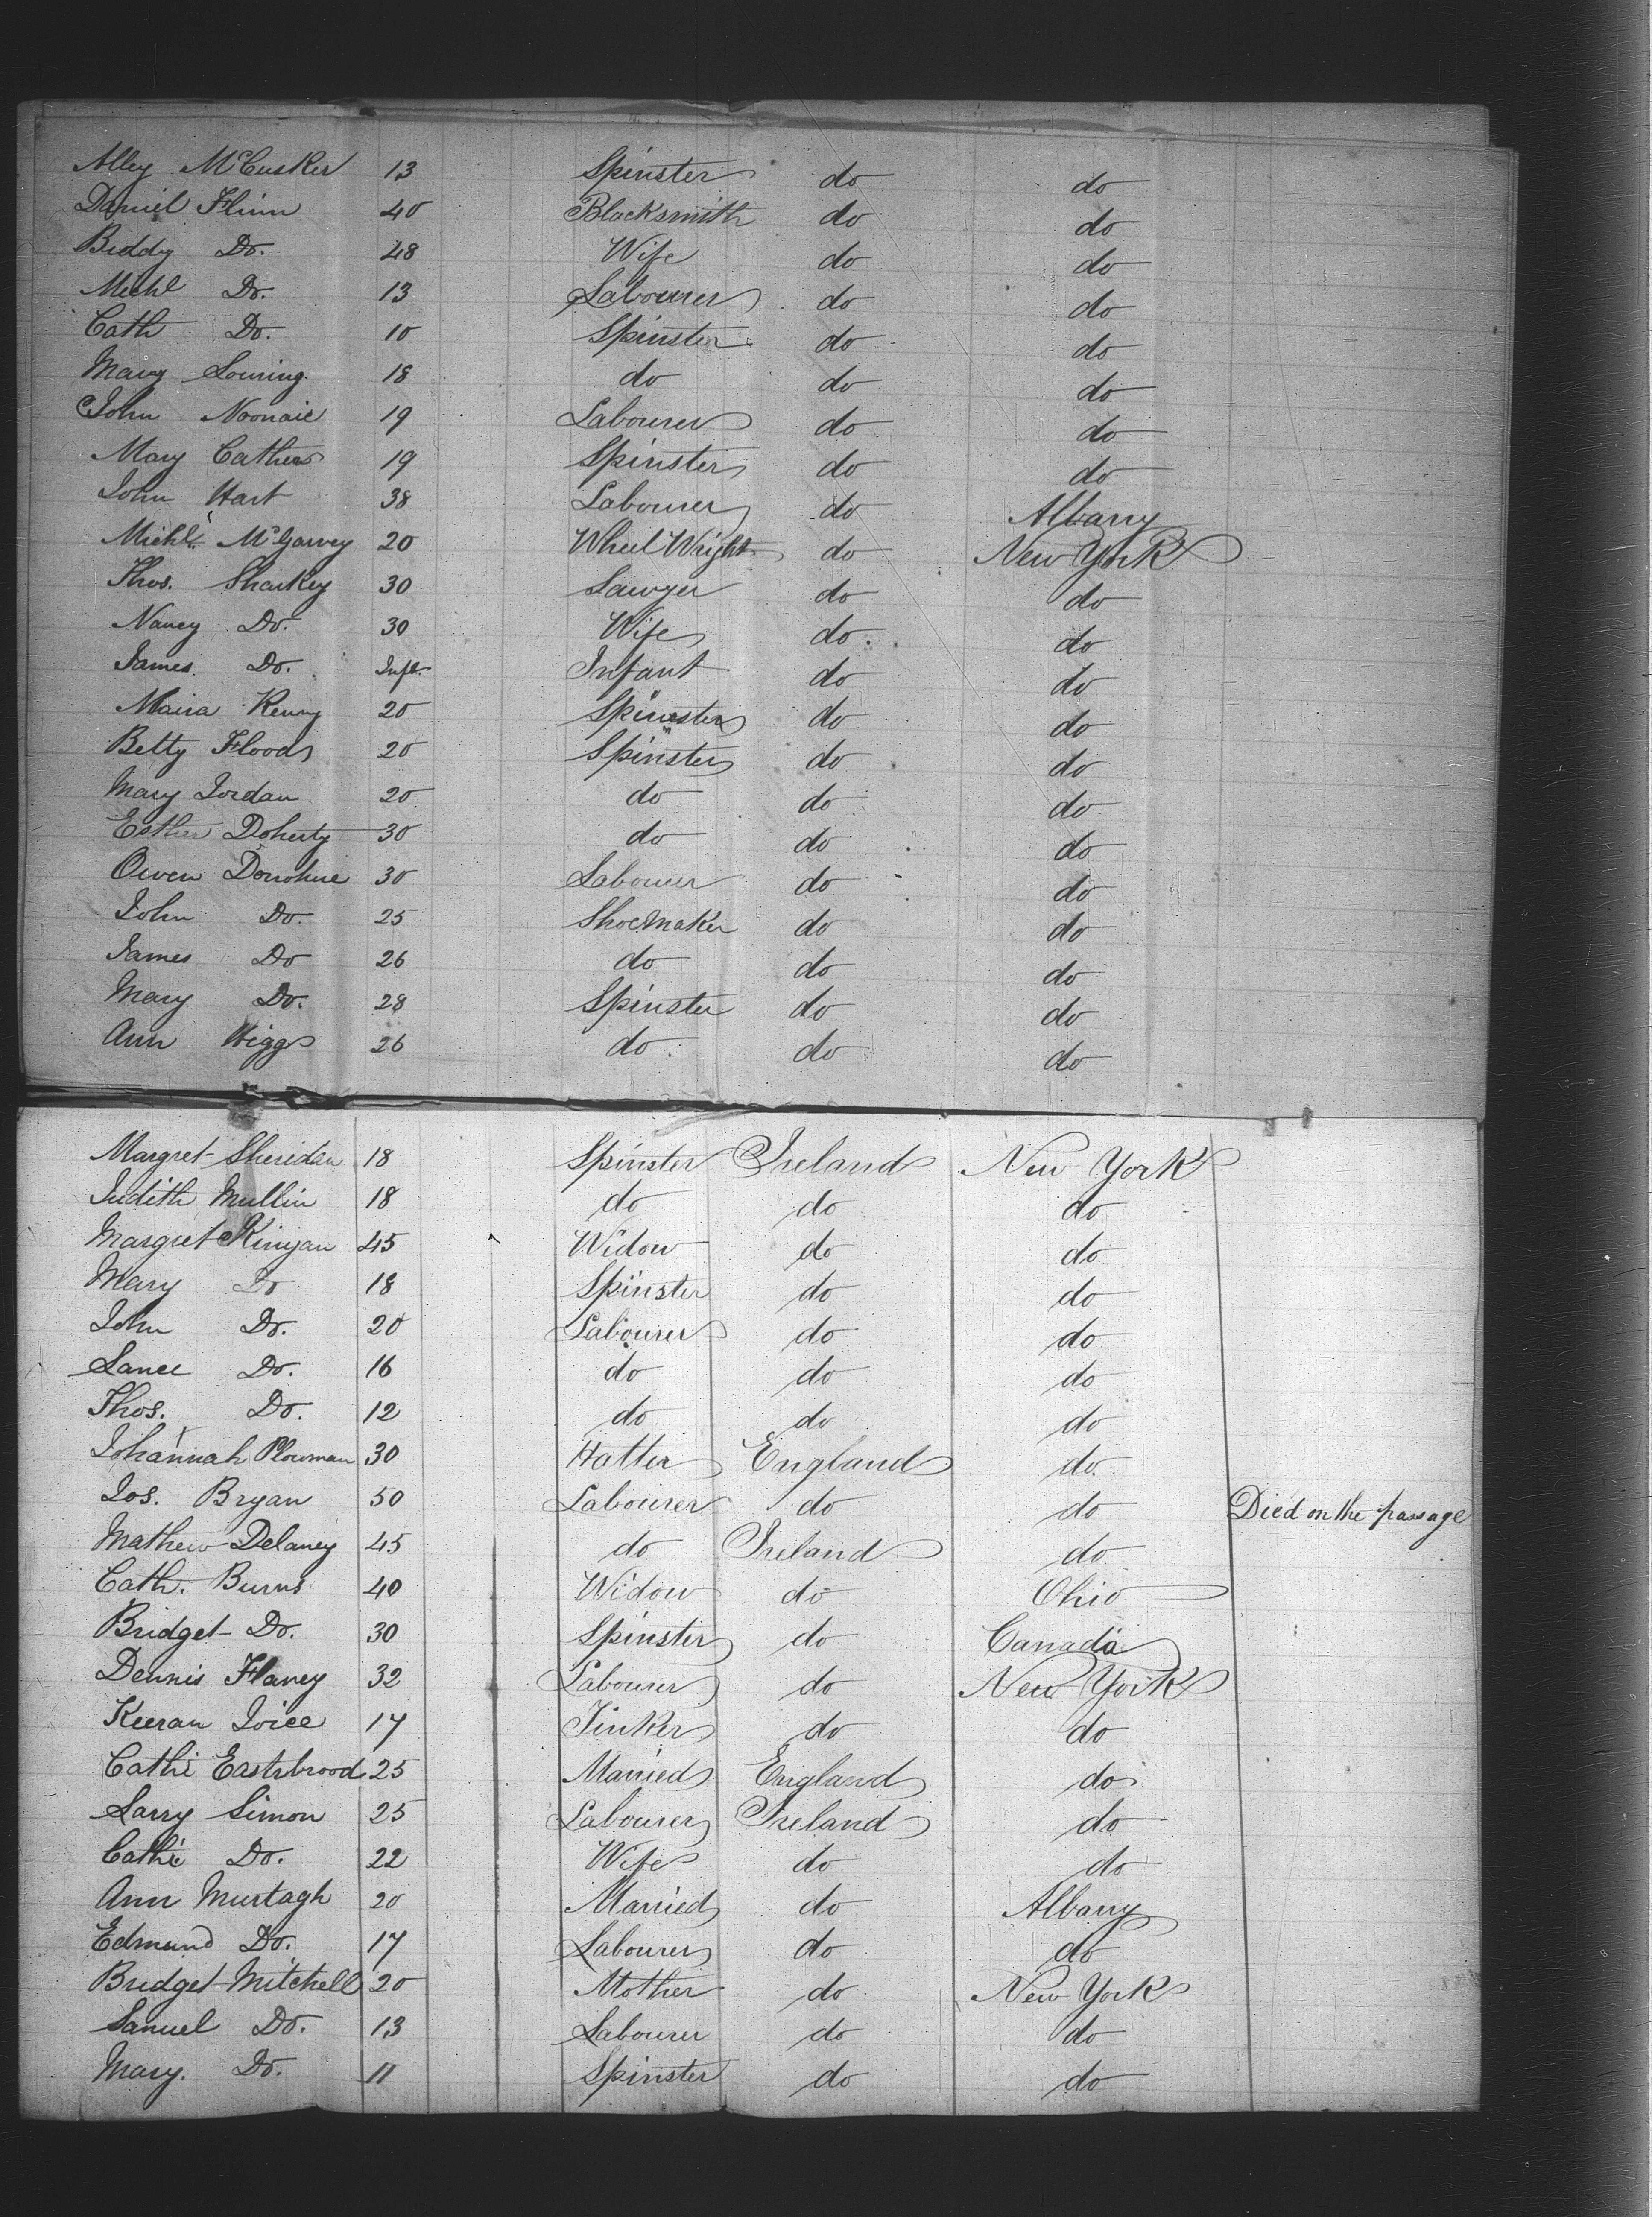 Alley McCusker 13 Spinster do do
Daniel Flinn 40 Blacksmith do do
Biddy Do. 48 Wife do do
Michl Do. 13 Labourer do do
Cath Do. 10 Spinster do do
Mary 18 do do do
John Noonaie 19 Labourer do do
Mary Cathers 19 Spinster do do
John Hart 38 Labourer do Albany
Michl. McGarvey 20 Wheel Wright do New York
Thos. Sharkey 30 Sawyer do do
Nancy Do. 30 Wife do do
James Do. Inft. Infant do do
Maira Kenny 20 Spinester do do
Betty Flood 20 Spinster do do
Mary Jordan 20 do do do
Esther Doherty 30 do do do
Owen Donohue 30 Labourer do do
John Do. 25 Shoemaker do do
James Do 26 do do do
Mary Do. 28 Spinster do do
Ann Higgs 26 do do do
Margret Sheridan 18 Spinster Ireland New York
Judith Mullin 18 do do do
Margret Kinijan 45 Widow do do
Mary Do 18 Spinster do do
John Do. 20 Labourer do do
Lance Do. 16 do do do
Thos. Do. 12 do do do
Johannah Plowman 30 Hatter England do.
Jos. Bryan 50 Labourer do do Died on the passage
Mathew Delaney 45 do Ireland do
Cath. Burns 40 Widow do Ohio
Bridget Do. 30 Spinster do Canada
Dennis Flaney 32 Labourer do New York
Keeran Joice 17 Tinker do do
Cathe Eastebrood 25 Married England do
Larry Simon 25 Labourer Ireland do
Cathe Do. 22 Wife do do
Ann Murtagh 20 Married do Albany
Edmund Do. 17 Labourer do do
Bridget Mitchell 20 Mother do New York
Sanuel Do. 13 Labourer do do
Mary. Do. 11 Spinster do do